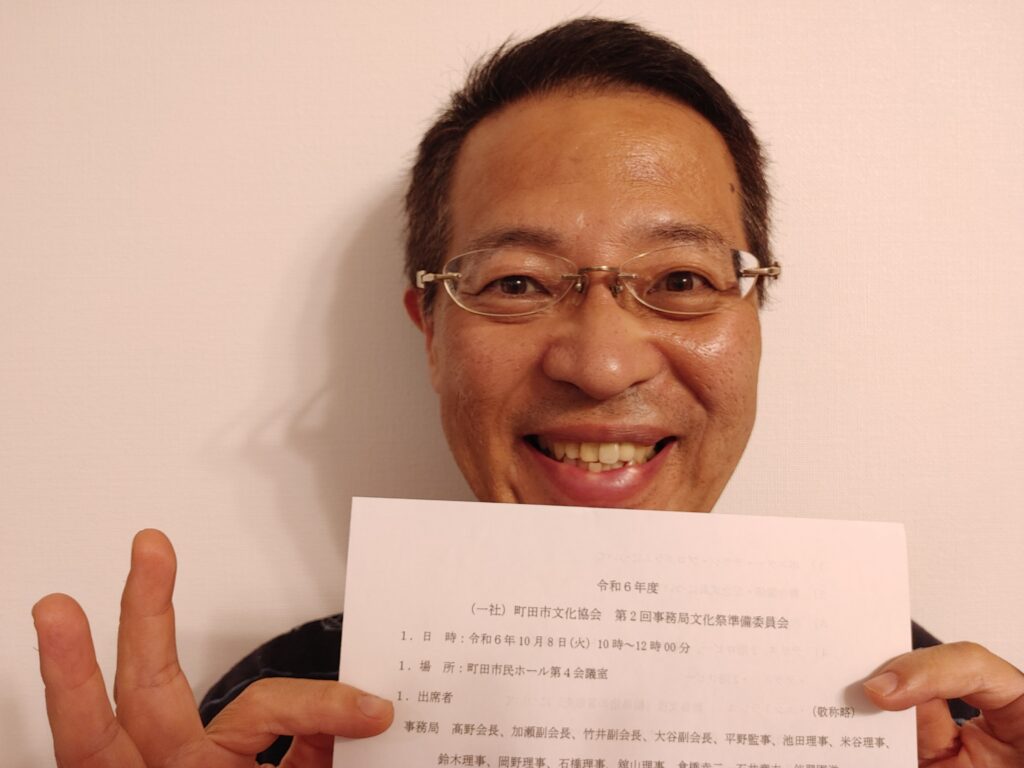 令和6年度
(一社) 町田市文化協会 第2回事務局文化祭準備委員会
1. 日 時：令和6年10月8日(火) 10時～12時00分
1. 場 所：町田市民ホール第4会議室
1. 出席者
(敬称略)
事務局 髙野会長、加瀬副会長、竹井副会長、大谷副会長、平野監事、池田理事、米谷理事、
鈴木理事、岡野理事、石橋理事、舘山理事、倉橋幸二、石井